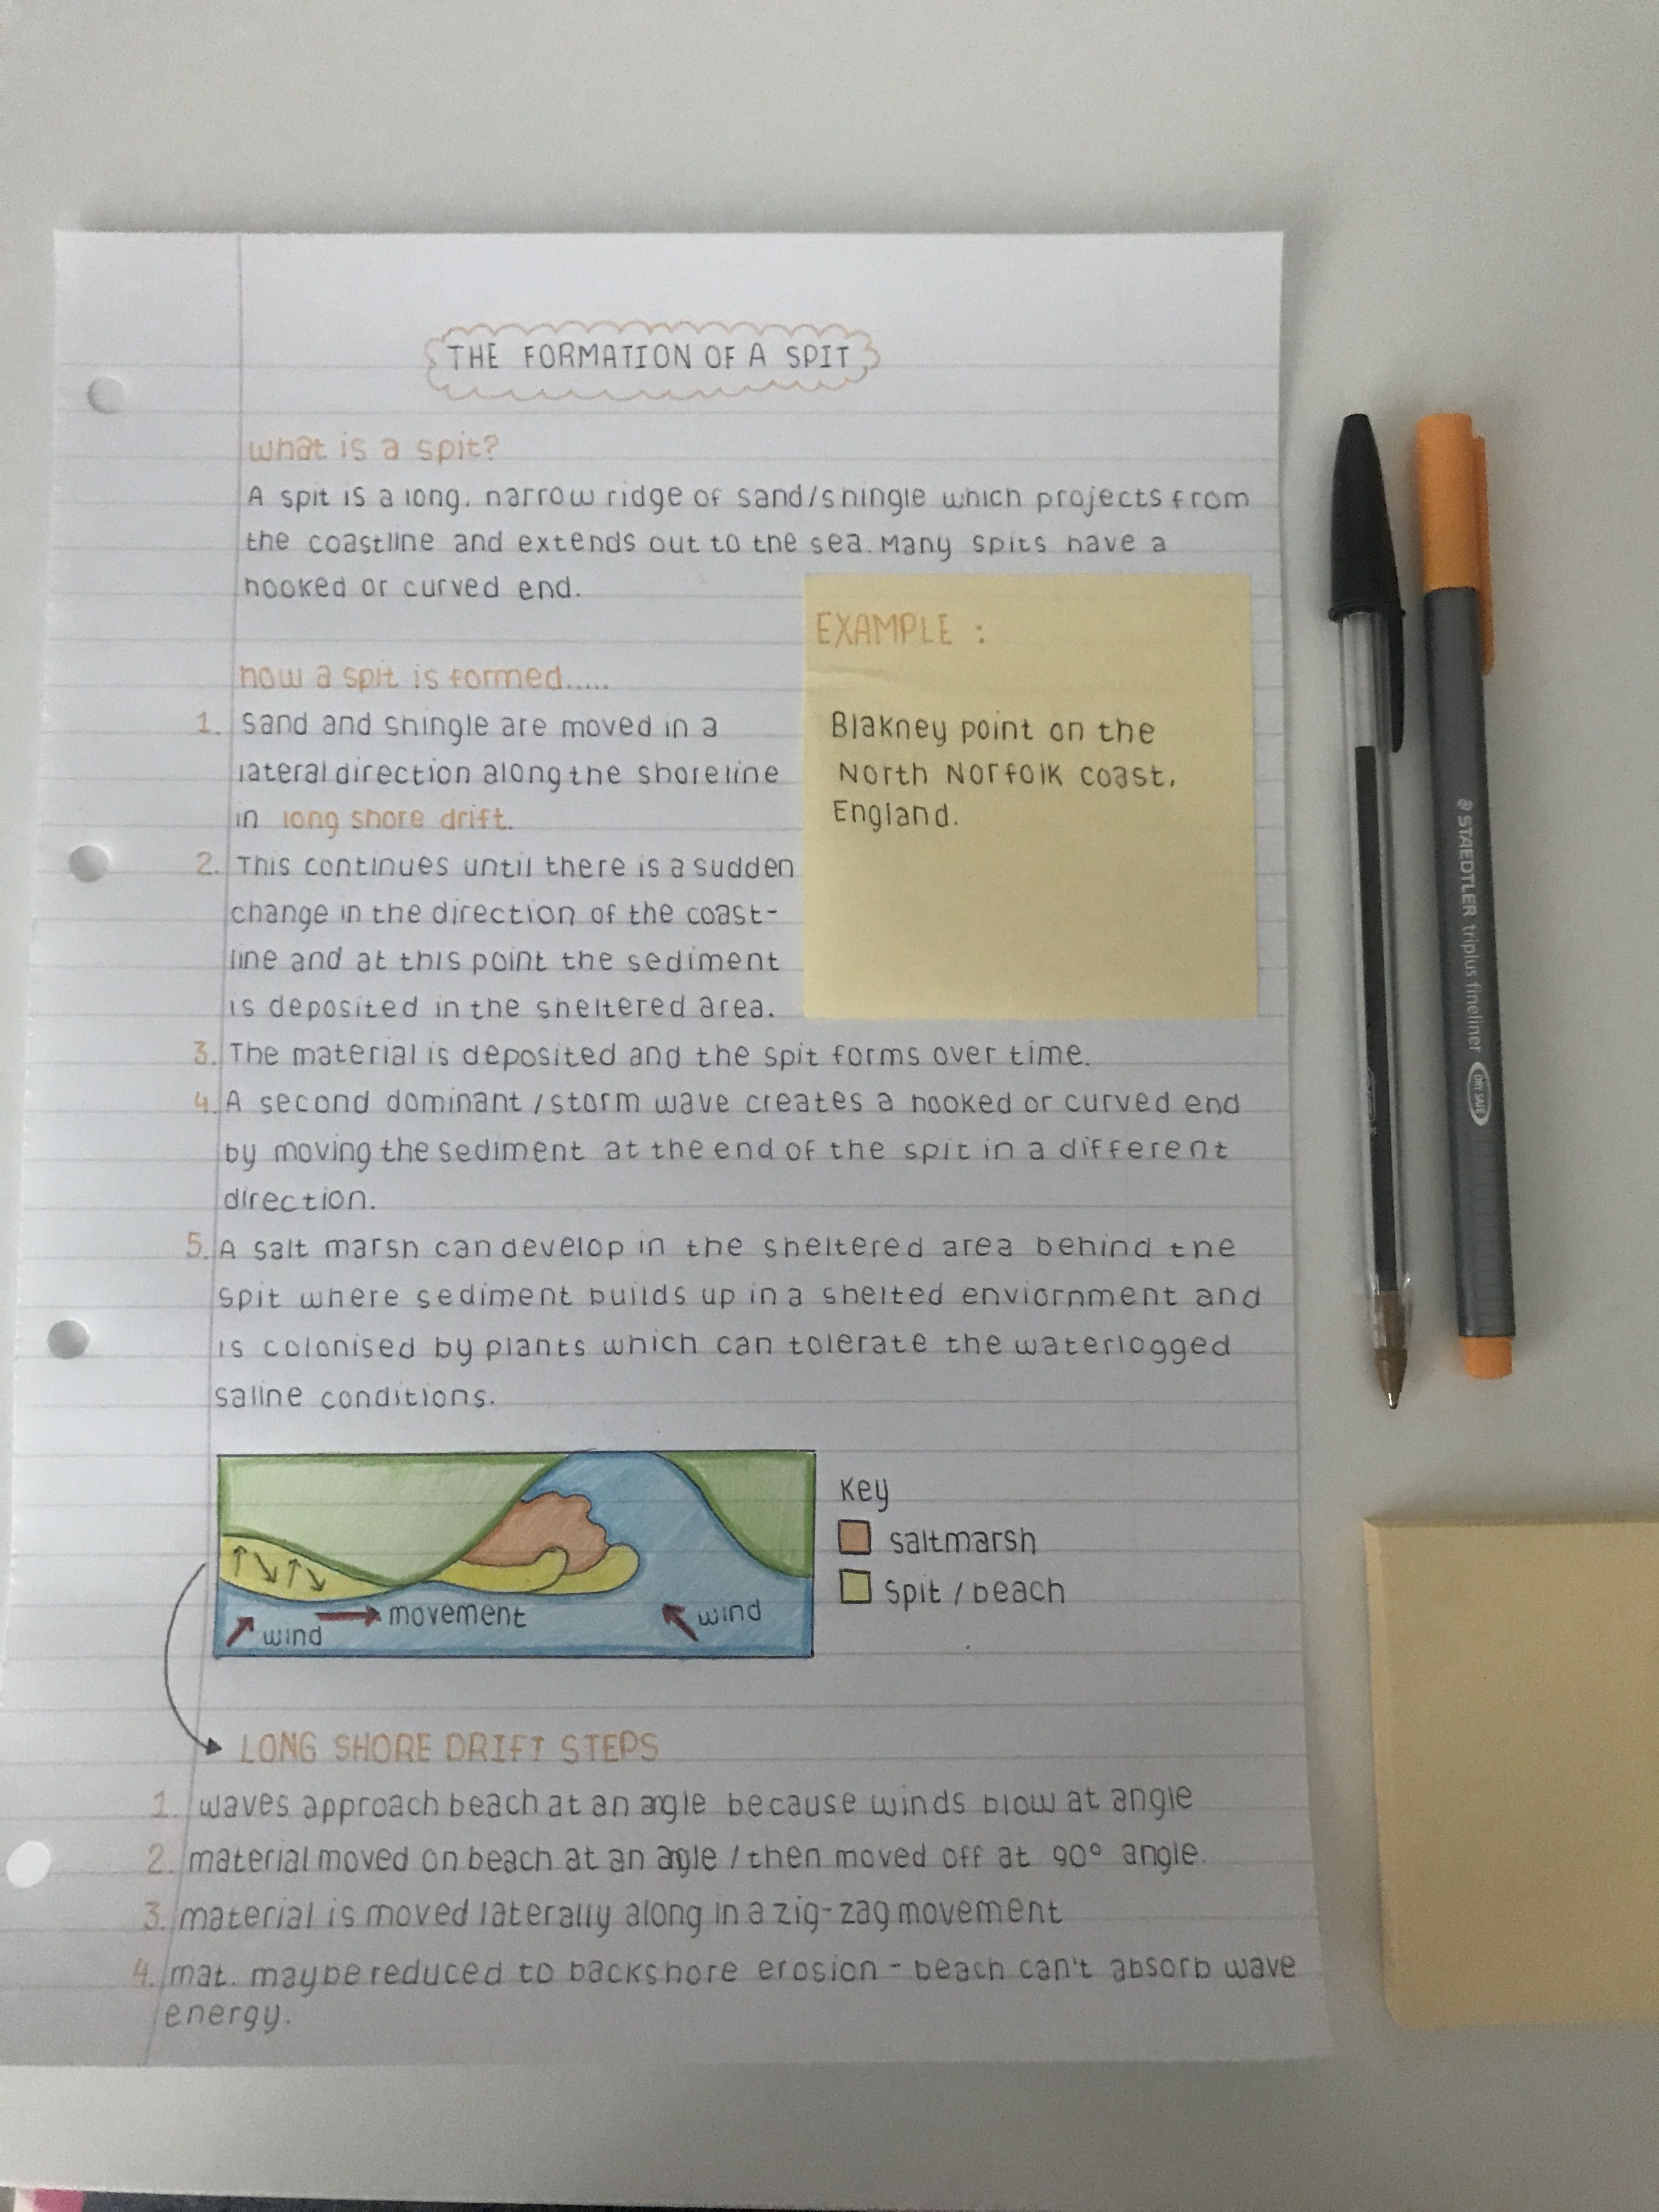 THE FORMATION OF A SPIT
what is a spit?
A spit is a long, narrow ridge of sand/shingle which projects from
the coastline and extends out to the sea. Many spits have a
hooked or curved end.
EXAMPLE :
Blakney point on the
North Norfolk coast,
England.
how a spit is formed.....
1. Sand and shingle are moved in a
lateral direction along the shoreline
in long shore drift.
2. This continues until there is a sudden
change in the direction of the coast-
line and at this point the sediment
is deposited in the sheltered area.
3. The material is deposited and the spit forms over time.
4. A second dominant / storm wave creates a hooked or curved end
by moving the sediment at the end of the spit in a different
direction.
5. A salt marsh can develop in the sheltered area behind the
spit where sediment builds up in a shelted enviornment and
is colonised by plants which can tolerate the waterlogged
saline conditions.
Key
saltmarsh
spit / beach
movement
wind
wind
LONG SHORE DRIFT STEPS
1. waves approach beach at an angle because winds blow at angle
2. material moved on beach at an angle / then moved off at 90° angle.
3. material is moved laterally along in a zig-zag movement
4. mat. maybe reduced to backshore erosion - beach can't absorb wave
energy.
STAEDTLER triplus fineliner
DRY SAFE